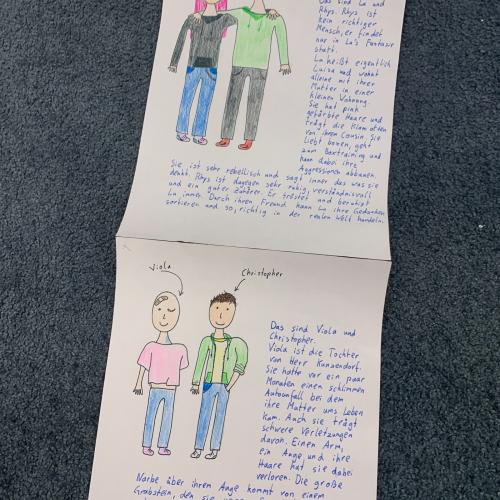 Das sind La und
Rhys. Rhys ist
kein richtiger
Mensch, er findet
nur in La's Fantasie
statt.
La heißt eigentlich
Luisa und wohnt
alleine mit ihrer
Mutter in einer
kleinen Wohnung.
Sie hat pink
gefärbte Haare und
trägt die Klamotten
von ihrem Cousin. Sie
liebt boxen, geht
zum Boxtraining und
kann dabei ihre
Aggressionen abbauen.
Sie ist sehr rebellisch und sagt immer das was sie
denkt. Rhys ist dagegen sehr ruhig, verständnisvoll
und ein guter Zuhörer. Er tröstet und beruhigt
La immer. Durch ihren Freund kann La ihre Gedanken
sortieren und so, richtig in der realen Welt handeln.
Viola
Christopher
Das sind Viola und
Christopher.
Viola ist die Tochter
von Herr Kunzendorf.
Sie hatte vor ein paar
Monaten einen schlimmen
Autounfall bei dem
ihre Mutter ums Leben
kam. Auch sie trägt
schwere Verletzungen
davon. Einen Arm,
ein Auge und ihre
Haare hat sie dabei
verloren. Die große
Narbe über ihren Auge kommt von einem
Grabstein, den sie